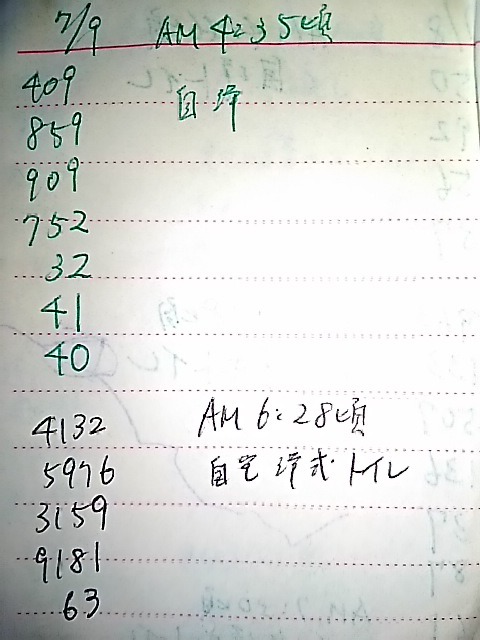 7/9 AM 4:35頃
409 自洋
859
909
752
32
41
40
4132 AM 6:28頃
5976 自宅洋式トイレ
3159
9181
63